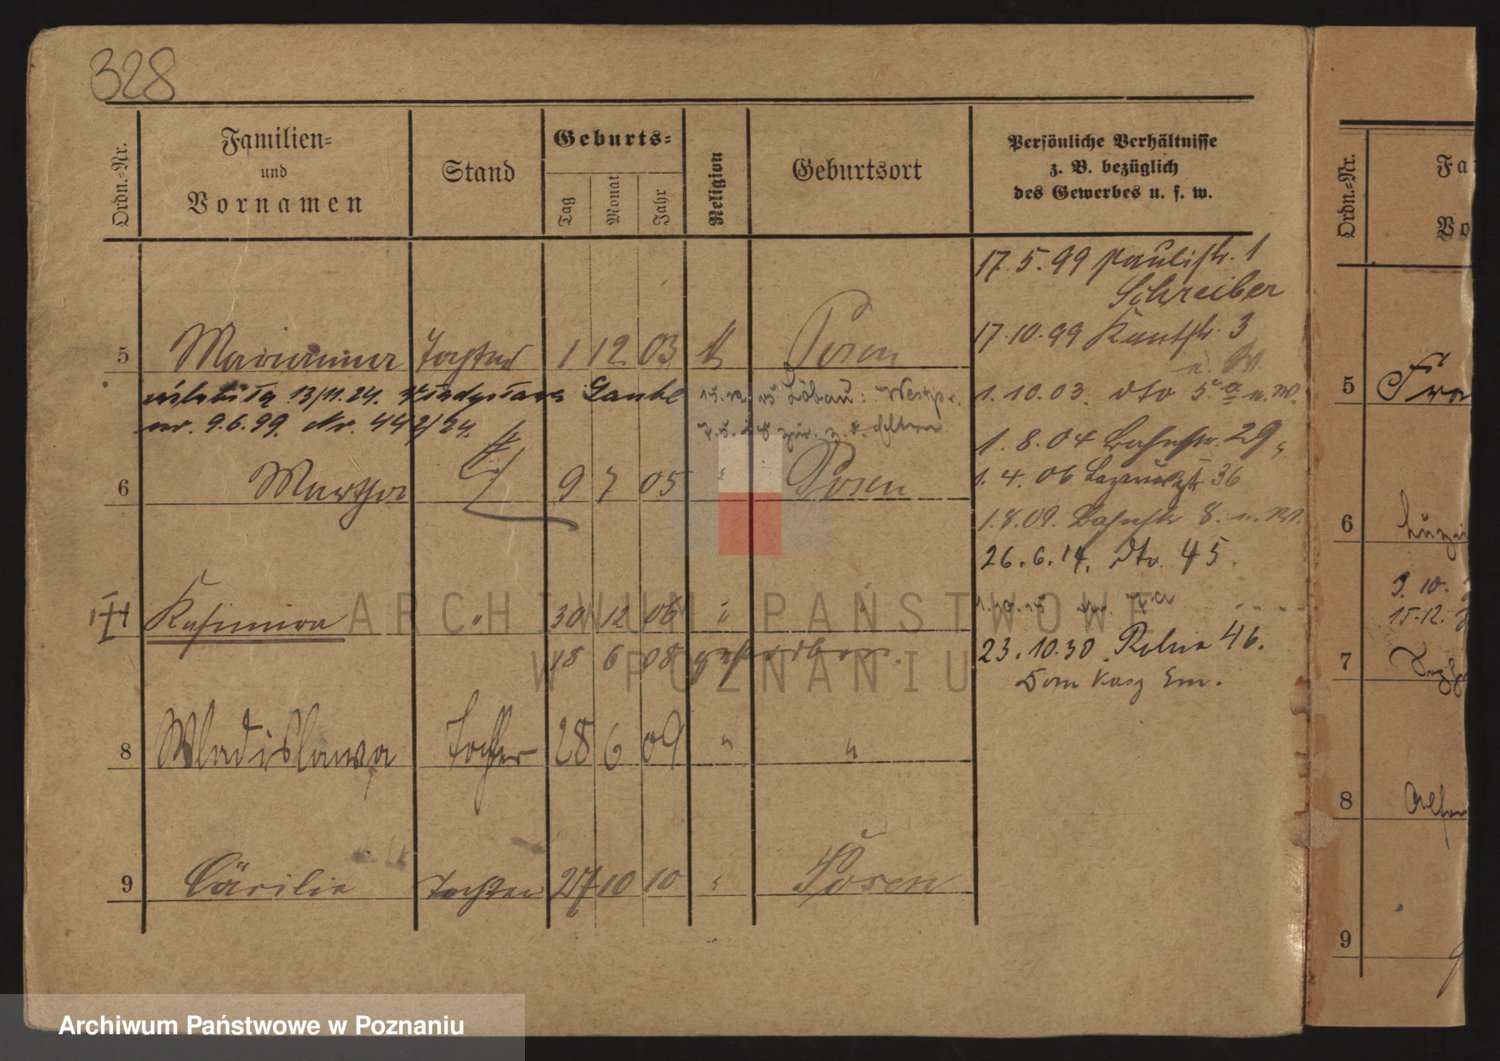 328
Ordn.-Nr.
Familien=
und
Vornamen
Stand
Geburts=
Tag
Monat
Jahr
Religion
Geburtsort
Persönliche Verhältnisse
z. B. bezüglich
des Gewerbes u. s. w.
17.5.99 Paulistr. 1
Schreiber
17.10.99 Kantstr. 3
5 Marianna Tochter 1 12 03 k Posen
1.10.03. dto 5a u. W.
13/11.24. Władysława
nr. 9.6.99. Nr. 442/24.
Löbau: Westpr.
zur. z. d. Eltern
1.8.04 Bahnstr. 29
6 Martha 9 7 05 " Posen
1.4.06 Lazarusstr 36
1.8.09. Bahnstr 8. u. W.
26.6.14. dto. 45.
Kasimira " 30 12 06 " "
18 6 08 gestorben.
23.10.30. Polna 46.
Dom Kasz Em.
8 Wladislawa Tochter 28 6 09 " "
9 Cäcilie Tochter 27 10 10 " Posen
Ordn.-Nr.
Fa
Vo
5 Fra
6
9. 10.
15.12.
7
8
9
ARCHIWUM PAŃSTWOWE
W POZNANIU
Archiwum Państwowe w Poznaniu